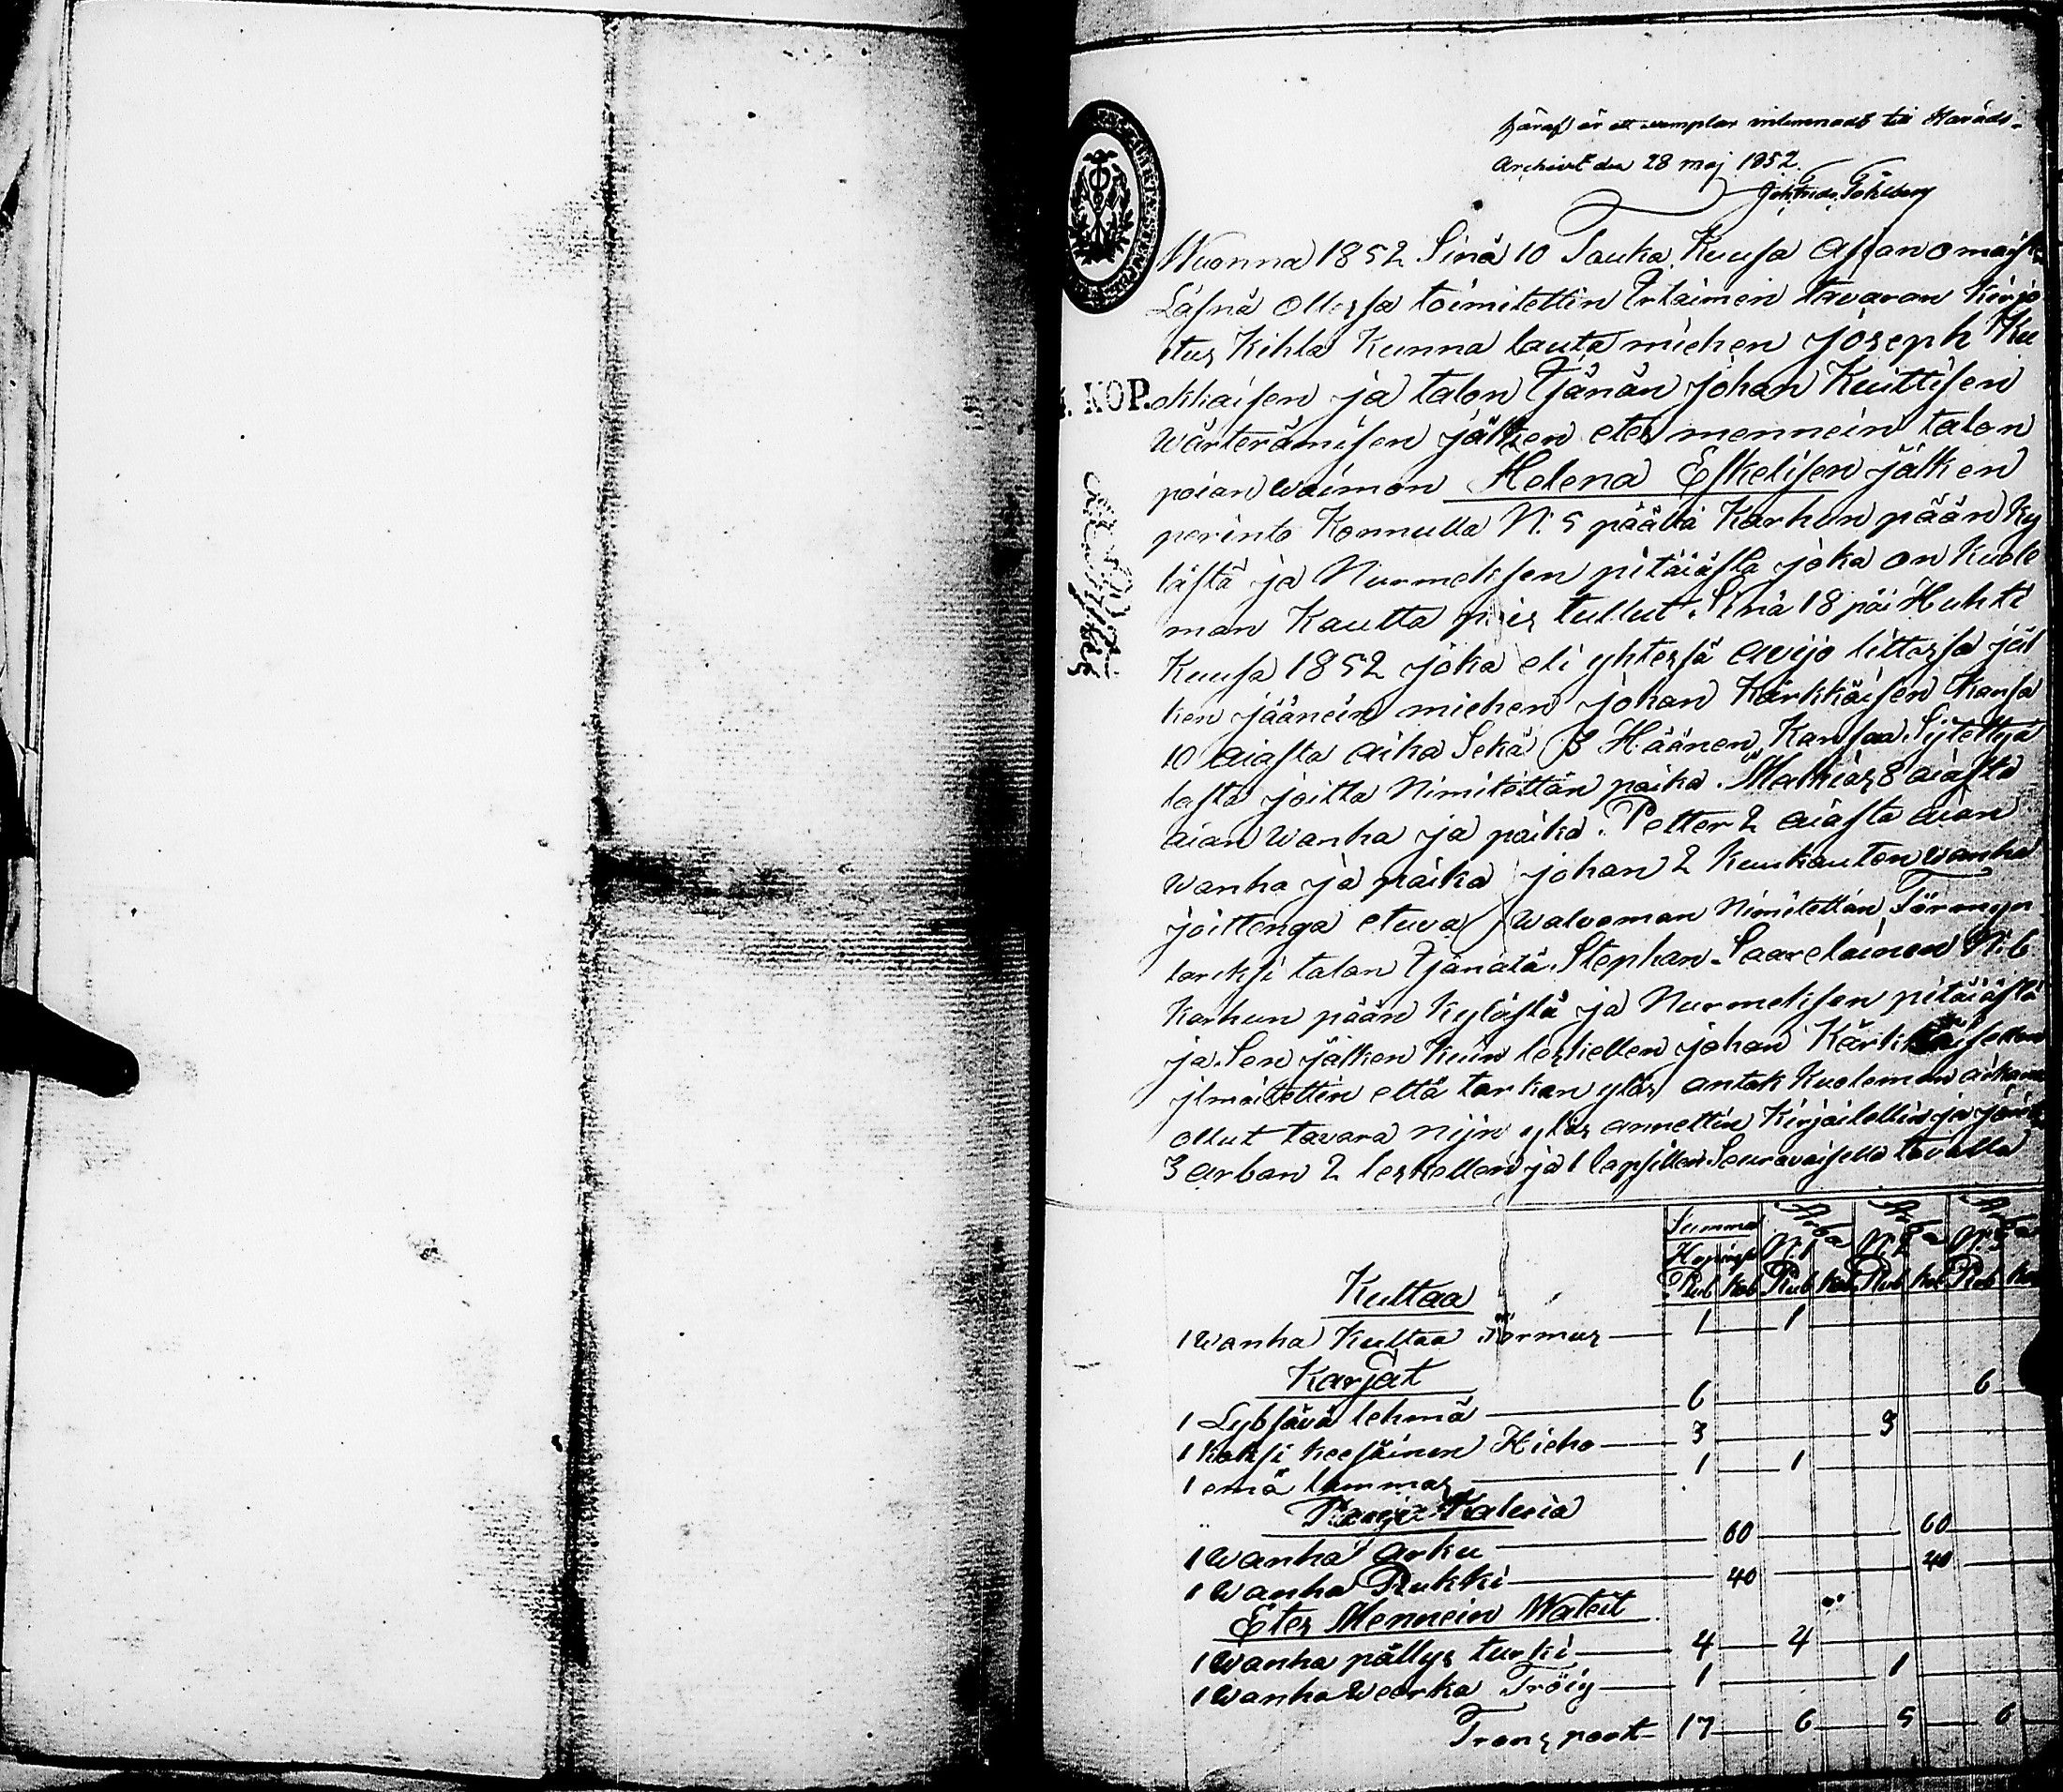 häraf är ett exemplar inlemnadt till Härads-
Archivet den 28 Maj 1852.
Wuonna 1852 Sinä 10 Touko Kuusa Assan omaisten
Läsnä ollessa toimitettin Irtaimen tavaron Kirjo
itus Kihla Kunna lauta miehen Joseph Ku
okkaisen ja talon Isänän Johan Kuittisen
Wärterämisen jälken etes mennein talon
poian waimon Helena Eskelisen jälken
perinto Konnulla N: 5 päältä Karhun pään Ky
lästä ja Nurmeksen pitäiästä joka on Kuole
man Kautta pois tullut Sinä 18 päi Huhti
Kuusa 1852 joka eli yhtessä avijo litossa jäl
ken jäänein miehen Johan Kärkkäisen Kansa
10 aiasta aika Sekä 3 Häänen Kansaa Sijtettyä
lasta joitta Nimitettän poika Mathias 8 aiasta
aian Wanha ja poika Petter 2 aiasta aian
Wanha ja poika Johan 2 Kuukauten Wanha
joittenga etuva Walvoman Nimitettän Förmyn
tariksi talon Isänätä Stephan Saarelainen N: 6
Karhun pään Kylästä ja Nurmeksen pitäiästä
ja Sen jälken Kuin leskellen Johan Kärkkäisellen
ilmoitettin että tarkan ylös antak Kuoleman aikana
ollut tavara nijn ylös annettin Kirjoitettin ja
3 arban 2 leskellen ja 1 lapsillen Seuravaisella tavalla
Summa Arba Arba Arba
N:1 N:2 N:3
Rub Kob Rub Kob Rub Kob Rub Kob
Kultaa
1 Wanha Kultaa Sormus 1 1
Karjat
1 Lybsävä lehmä 6 6
1 Kaksi keesäinen Hieho 3 3
1 emä lammas 1 1
Kaluia
1 Wanha arku 60 60
1 Wanha Rukki 40 40
Etes Mennein Wateit
1 Wanha pällys turki 4 4
1 Wanha Weerka Tröiy 1 1
Transport 17 6 5 6
KOP.